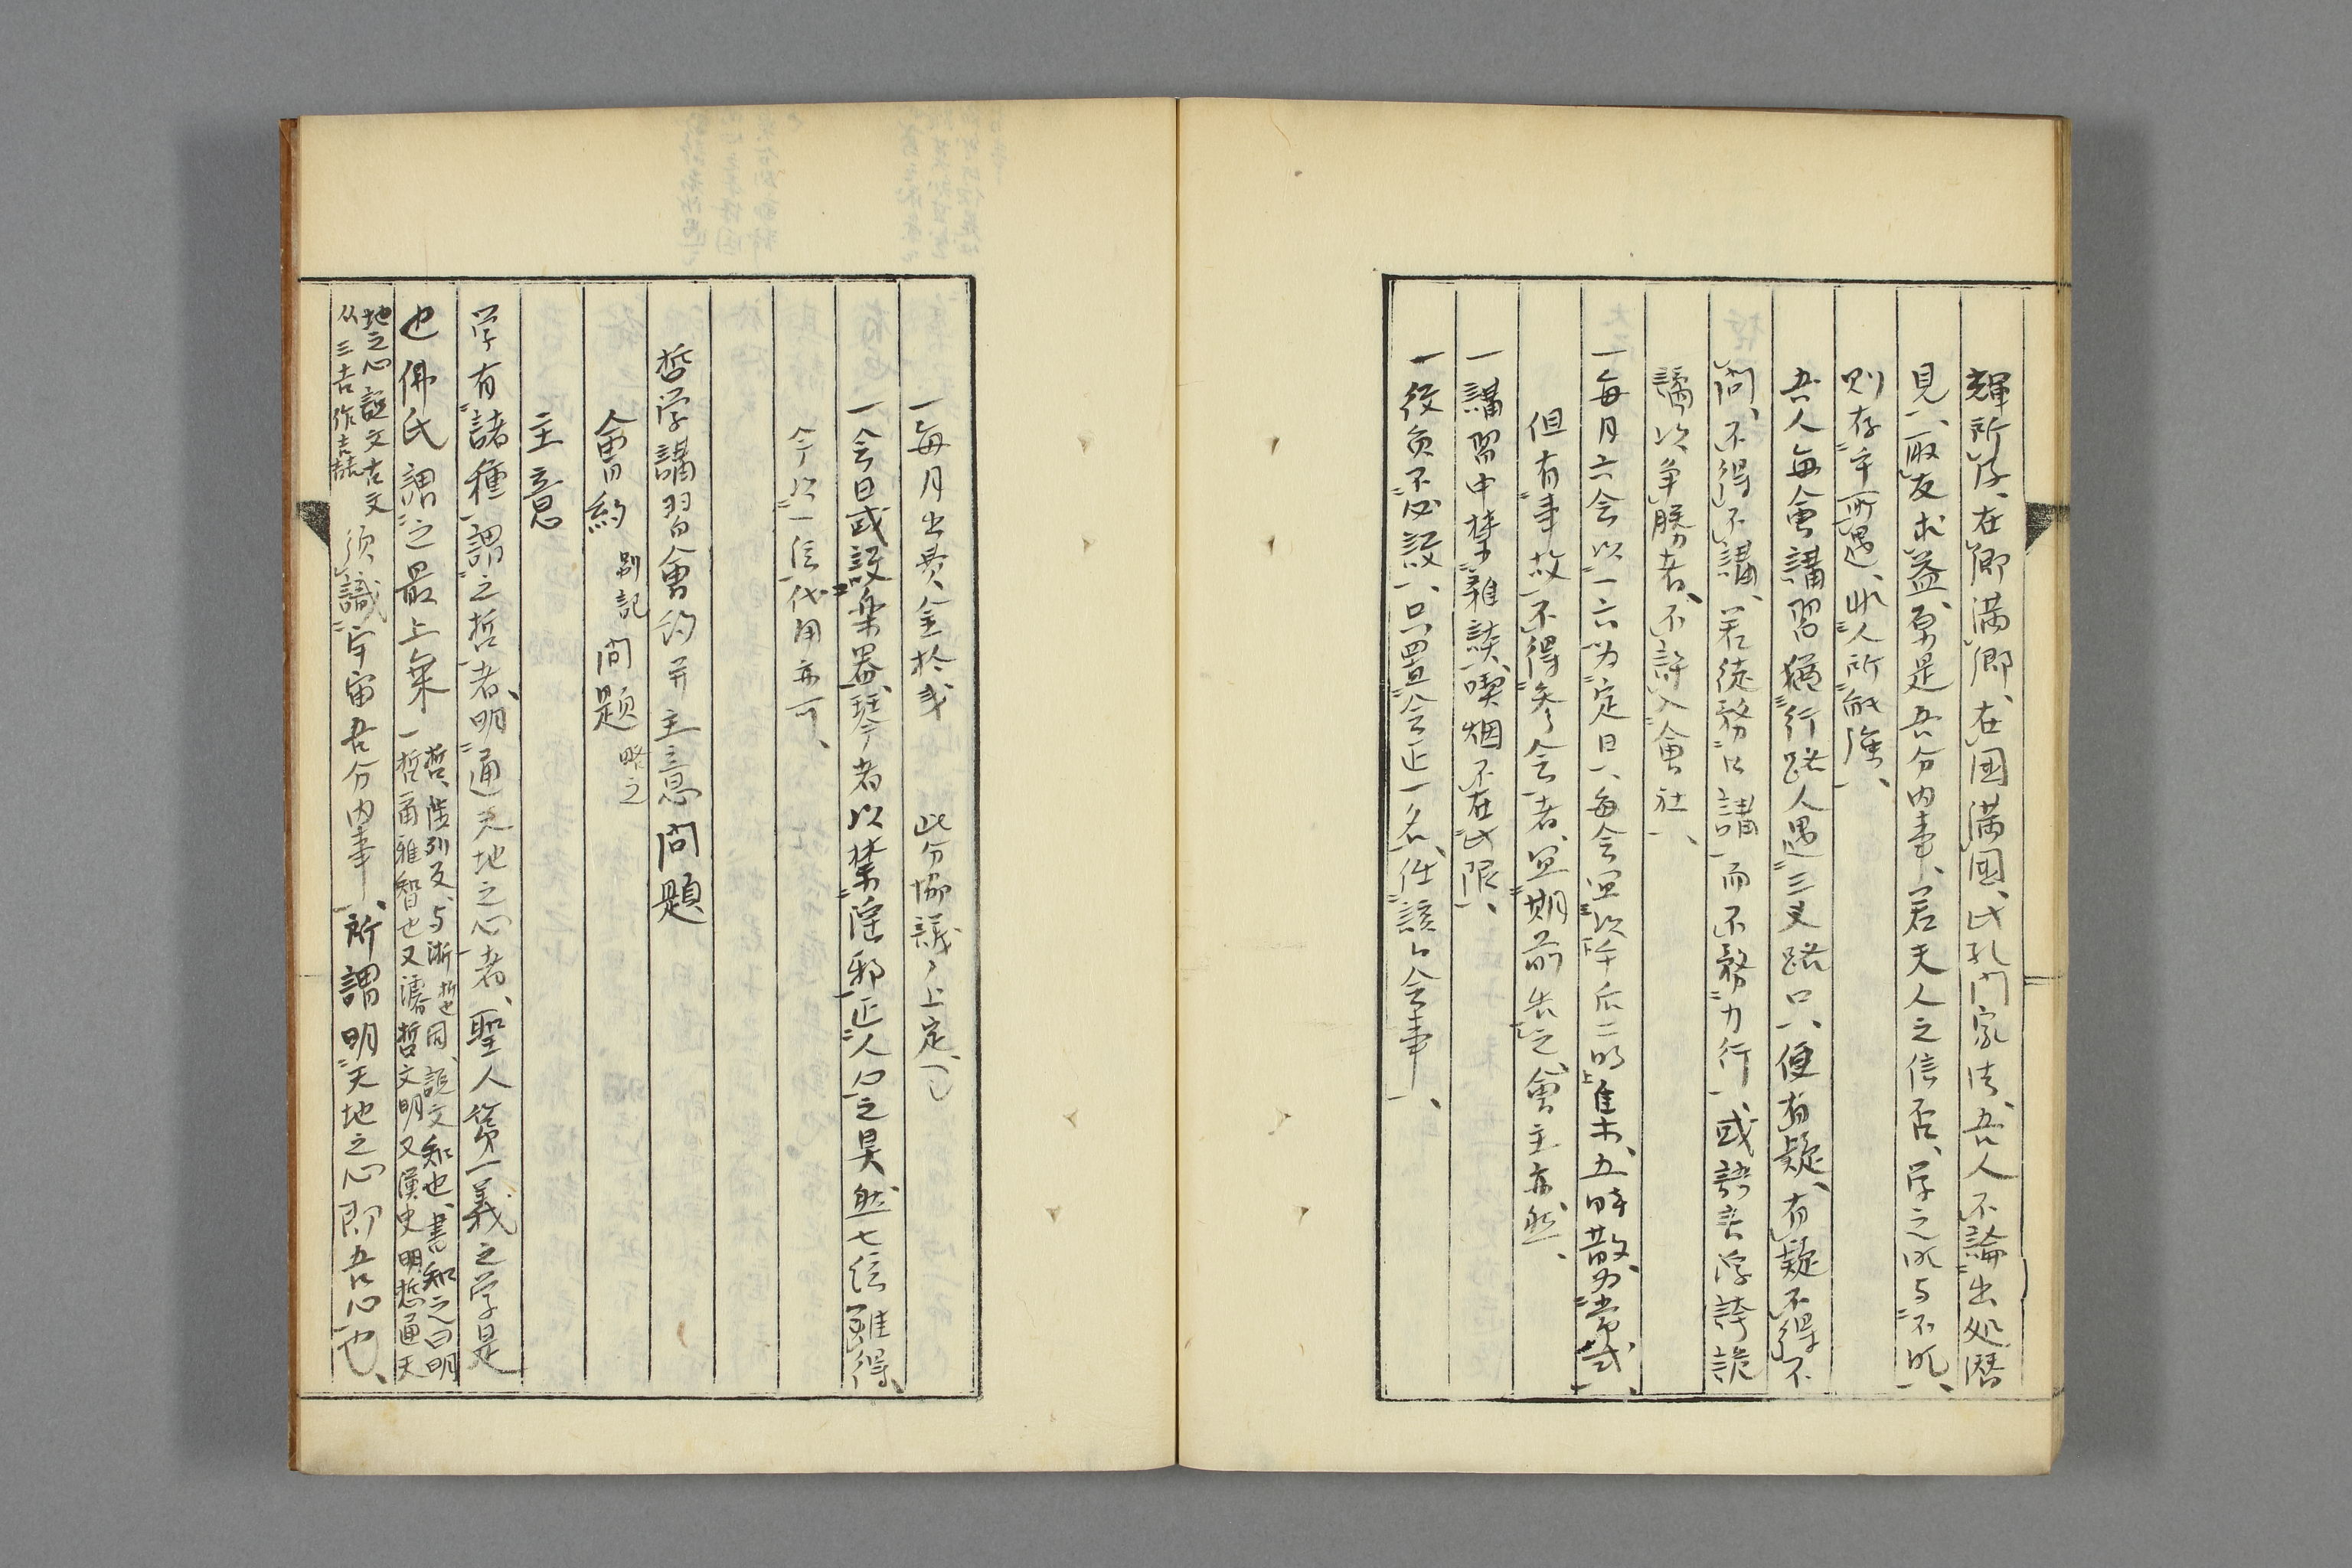 輝所存、在郷満郷、在国満国、此孔門家法、吾人不論出処潜
見、取友求益、原是吾分内事、若夫人之信否、学之成与不成、
則存乎所遇、非人所能強、
吾人毎會講習猶行路人遇三叉路口、便有疑、有疑不得不
問、不得不講、若徒務口講而不務力行、或誇言浮誇詭
譎以争勝者、不許入會社、
一毎月六会以一六為定日、毎会宜以午后二時進集、五時散為常式、
但有事故不得参会者、宜期前告之、會主亦然、
一講習中禁雑談、喫烟不在此限、
一役員不必設、只置会正一名、任該会事、
一毎月出費金於 此分協議ノ上定ム
一会日或設楽器、琴者以禁淫邪正人心之具、然七絃難得、
今以一絃代用亦可、
哲学講習會約并主意問題
會約 別記 問題 略之
主意
学有諸種、謂之哲者、明通天地之心者、聖人第一義之学是
也、佛氏謂之最上乗、哲、陟列反、与浙哲也同、説文知也、書知之曰明
哲、爾雅智也又濬哲文明又漢史明悊通天
地之心説文古文
从三吉作嚞喆 須識宇宙吾分内事、所謂明天地之心即吾心也、